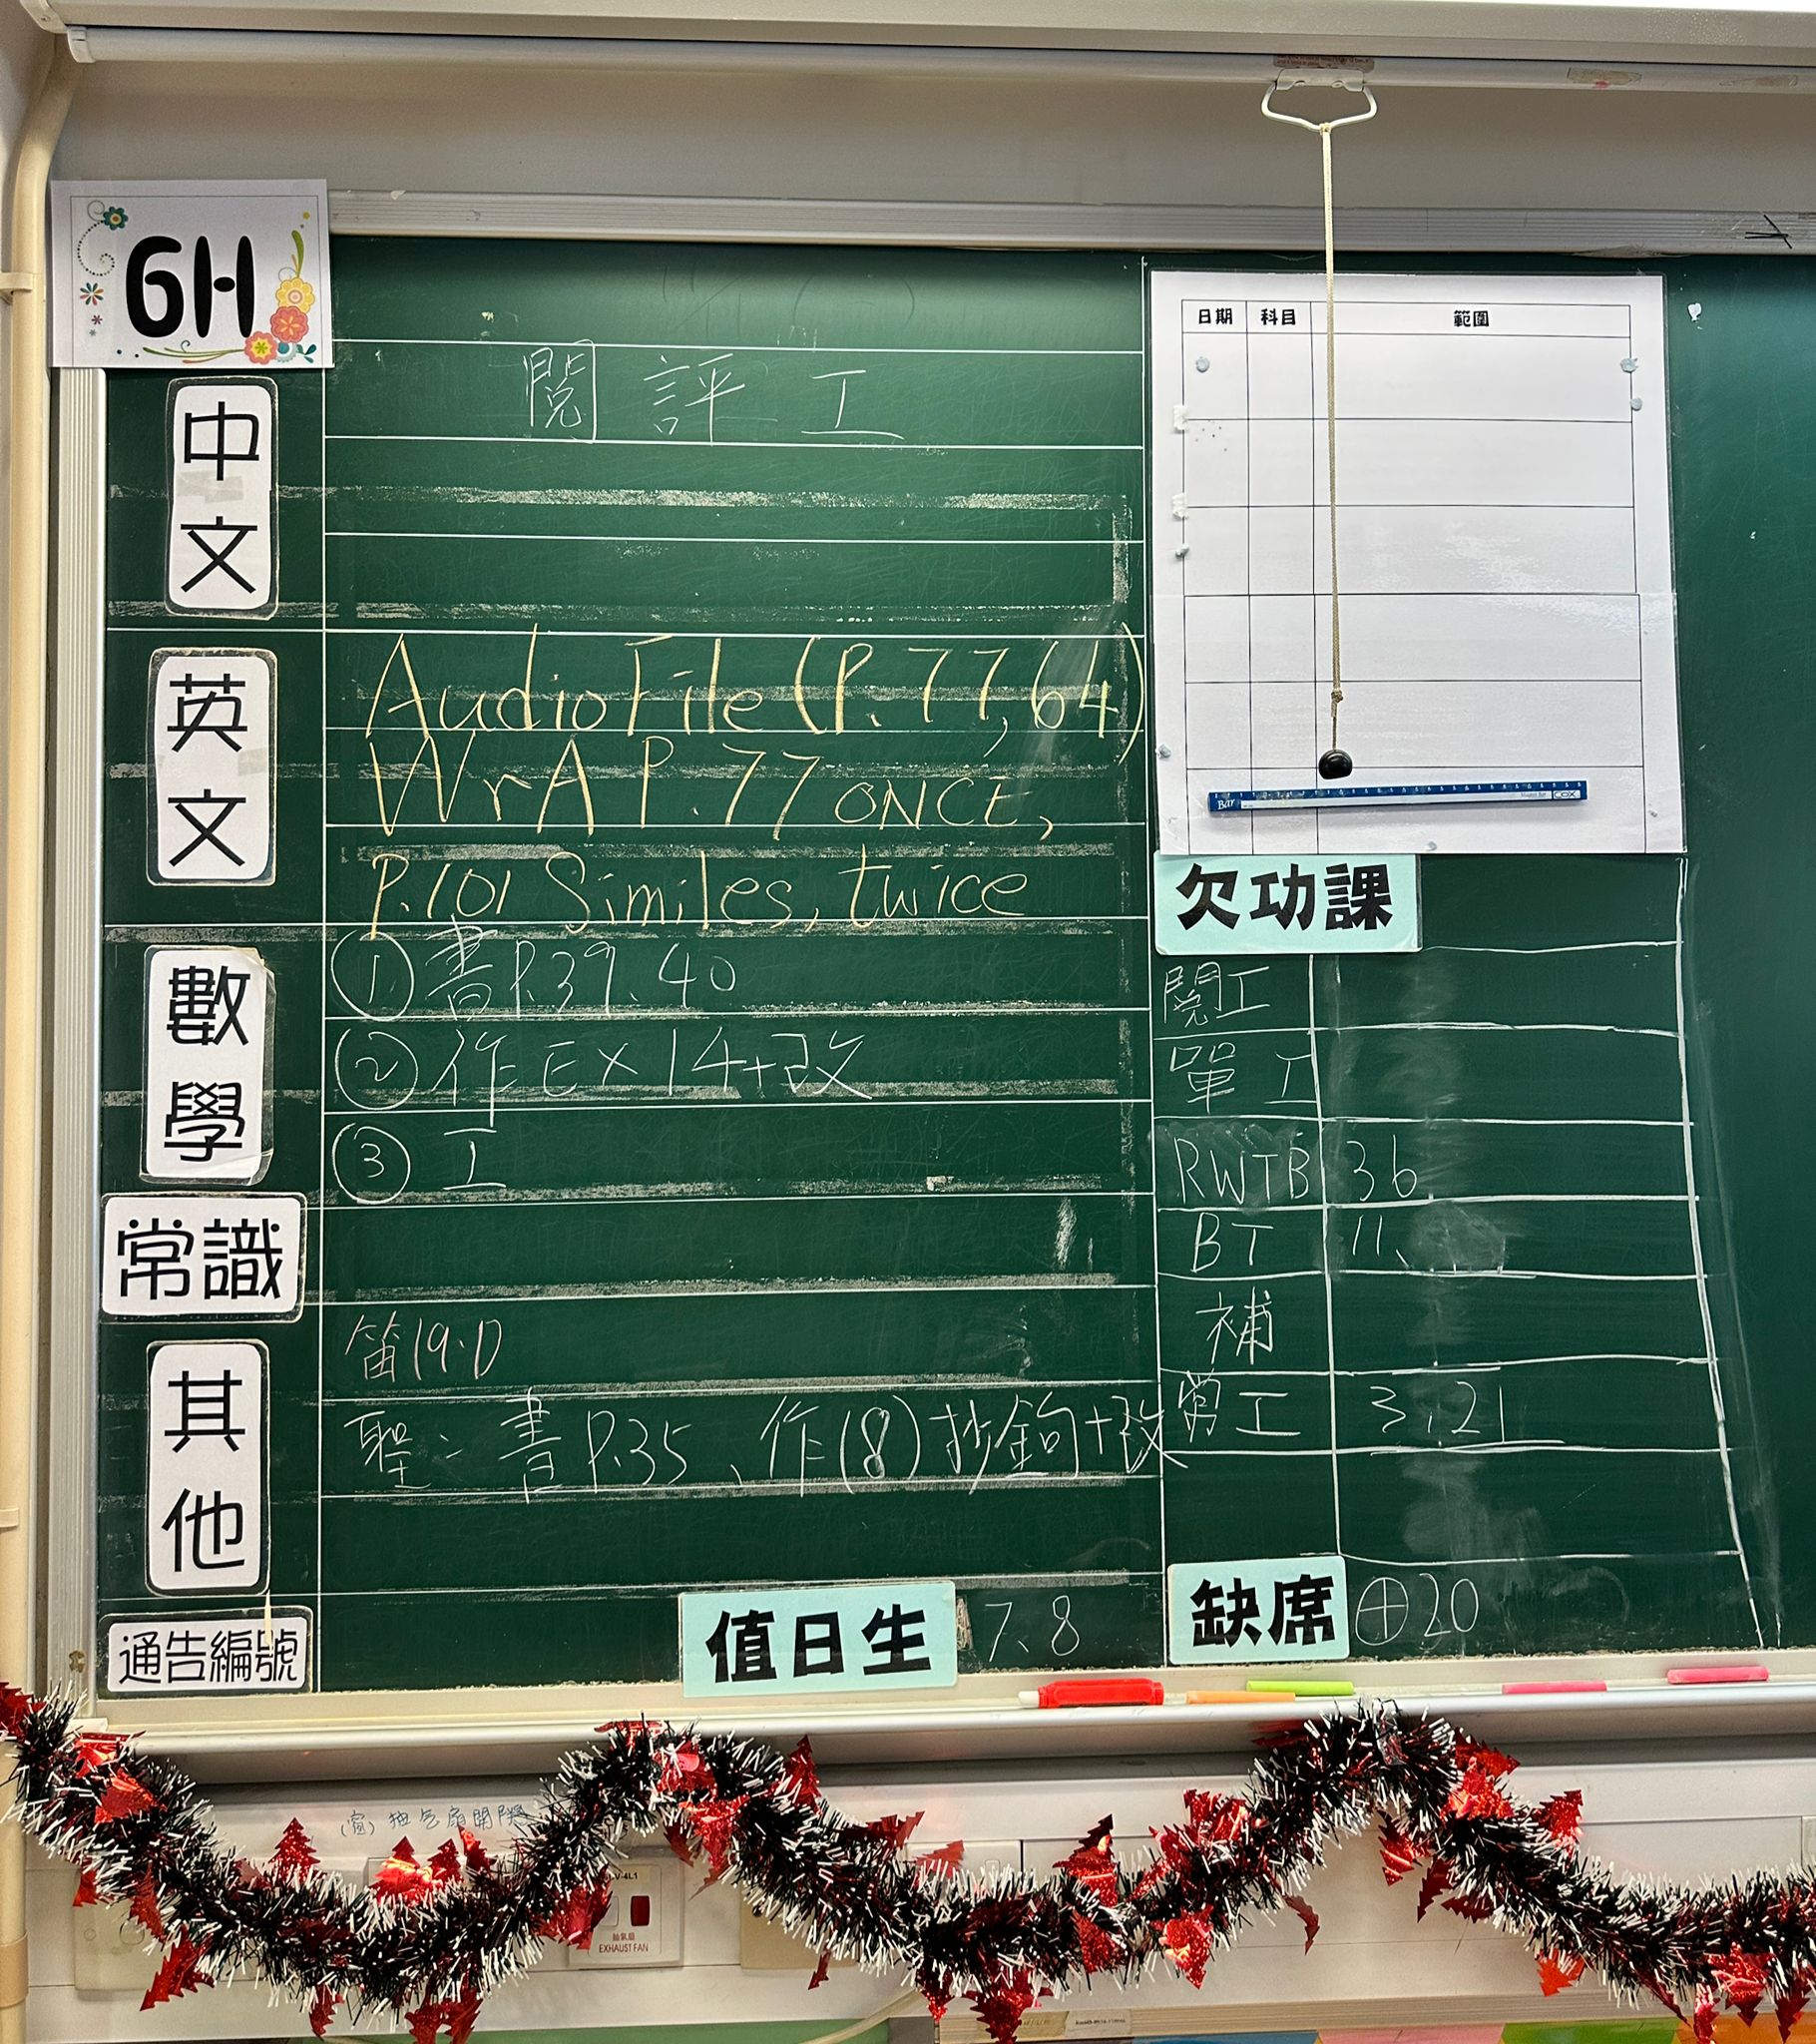 6H
中文
閱 評 工
英文
Audio File (P.77, 64)
WrA P.77 ONCE,
P.101 Similes, twice
數學
① 書P.39、40
② 作EX14+改
③ 工
常識
其他
笛19.D
聖：書P.35、作(8)抄鉤+改
通告編號
值日生 7、8
日期 科目 範圍
Bar COX
欠功課
閱工
單工
RWTB 36
BT 11、
補
常工 3,21
缺席 ⊕20
抽氣扇
EXHAUST FAN